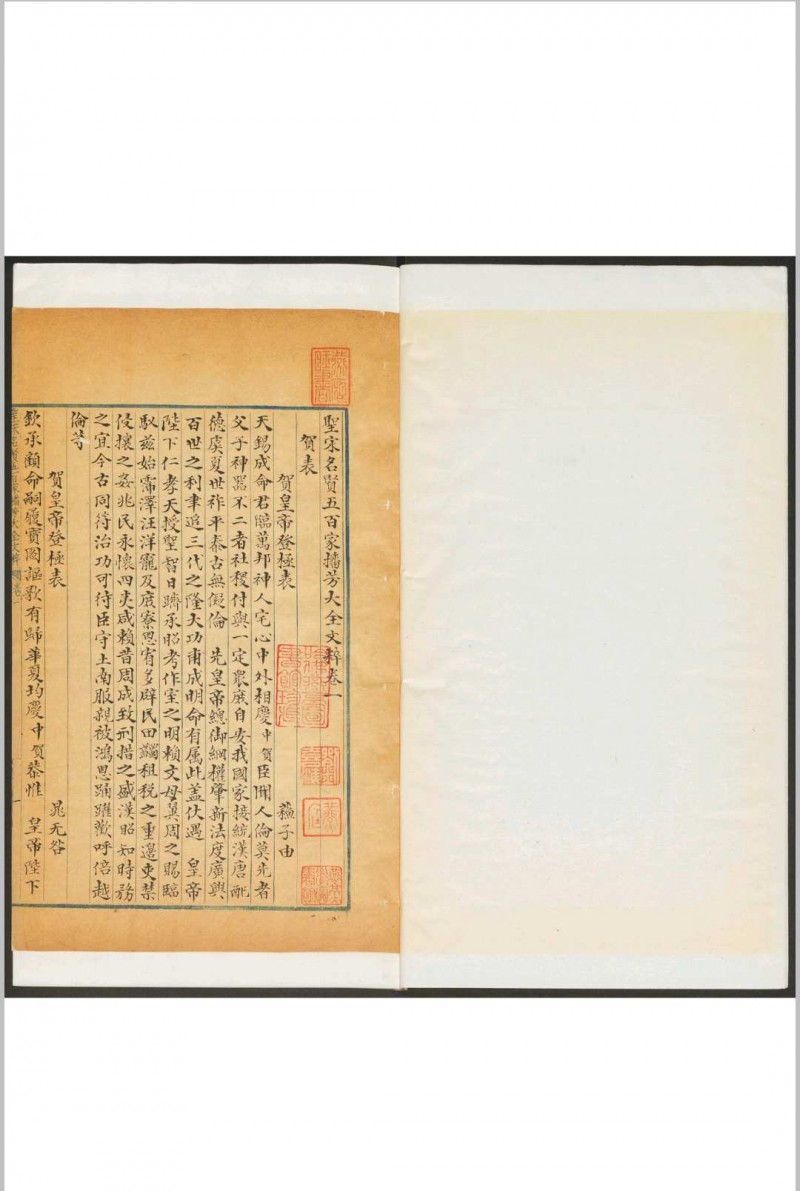 聖宋名賢五百家播芳大全文粹卷一
賀表
賀皇帝登極表 蘇子由
天錫成命君臨萬邦神人宅心中外相慶中賀臣聞人倫莫先者
父子神器不二者社稷付與一定衆庶自安我國家接統漢唐配
德虞夏世祚平泰古無儗倫 先皇帝總御綱權肇新法度廣興
百世之利聿追三代之隆大功甫成明命有属此蓋伏遇 皇帝
陛下仁孝天授聖智日躋承昭考作室之明賴文母翼周之賜臨
馭兹始霈澤汪洋寵及底寮恩宥多辟民田蠲租税之重邊吏禁
侵攘之姦兆民永懷四夷咸賴昔周成致刑措之盛漢昭知時務
之宜今古同符治功可待臣守土南服親被鴻恩踊躍歡呼倍越
倫等
賀皇帝登極表 晁无咎
欽承顧命嗣履寶圖謳歌有歸華夏均慶中賀恭惟 皇帝陛下